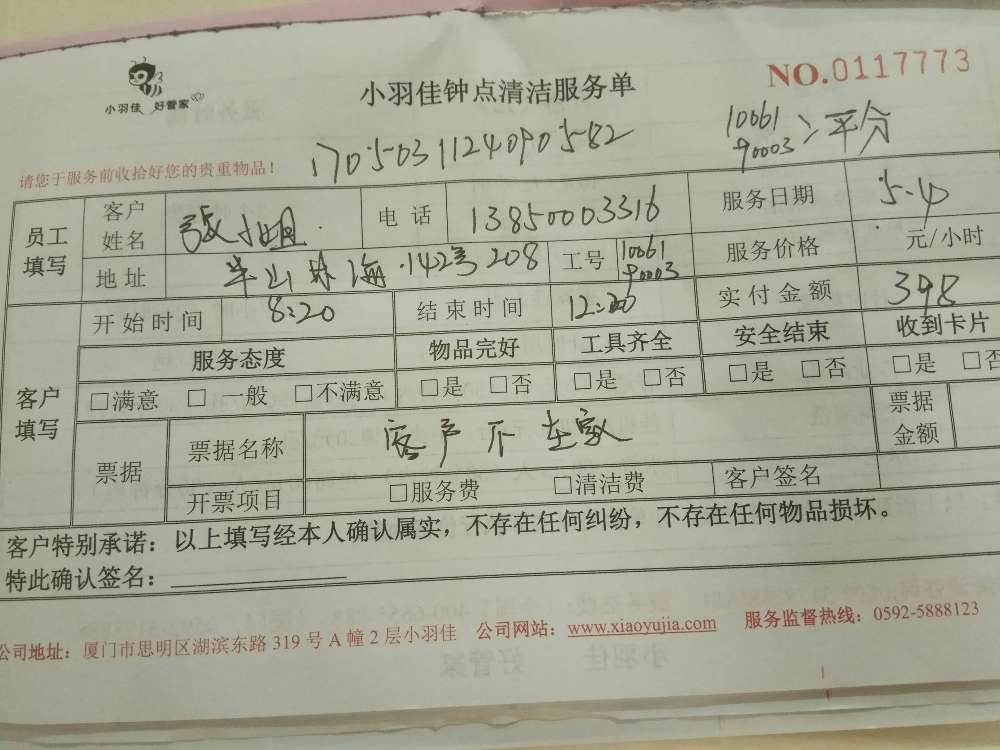 小羽佳 好管家
小羽佳钟点清洁服务单
NO.0117773
请您于服务前收拾好您的贵重物品!
1705031124090582
10061
90003 > 平分
员工填写 客户姓名 张小姐 电话 13850003316 服务日期 5-4
地址 半山林海·142号208 工号 10061 90003 服务价格 元/小时
客户填写 开始时间 8:20 结束时间 12:20 实付金额 398
服务态度 物品完好 工具齐全 安全结束 收到卡片
□满意 □一般 □不满意 □是 □否 □是 □否 □是 □否 □是 □否
票据 票据名称 客户不在家 票据金额
开票项目 □服务费 □清洁费 客户签名
客户特别承诺:以上填写经本人确认属实,不存在任何纠纷,不存在任何物品损坏。
特此确认签名:
公司地址:厦门市思明区湖滨东路 319 号 A 幢 2 层小羽佳 公司网站:www.xiaoyujia.com 服务监督热线:0592-5888123